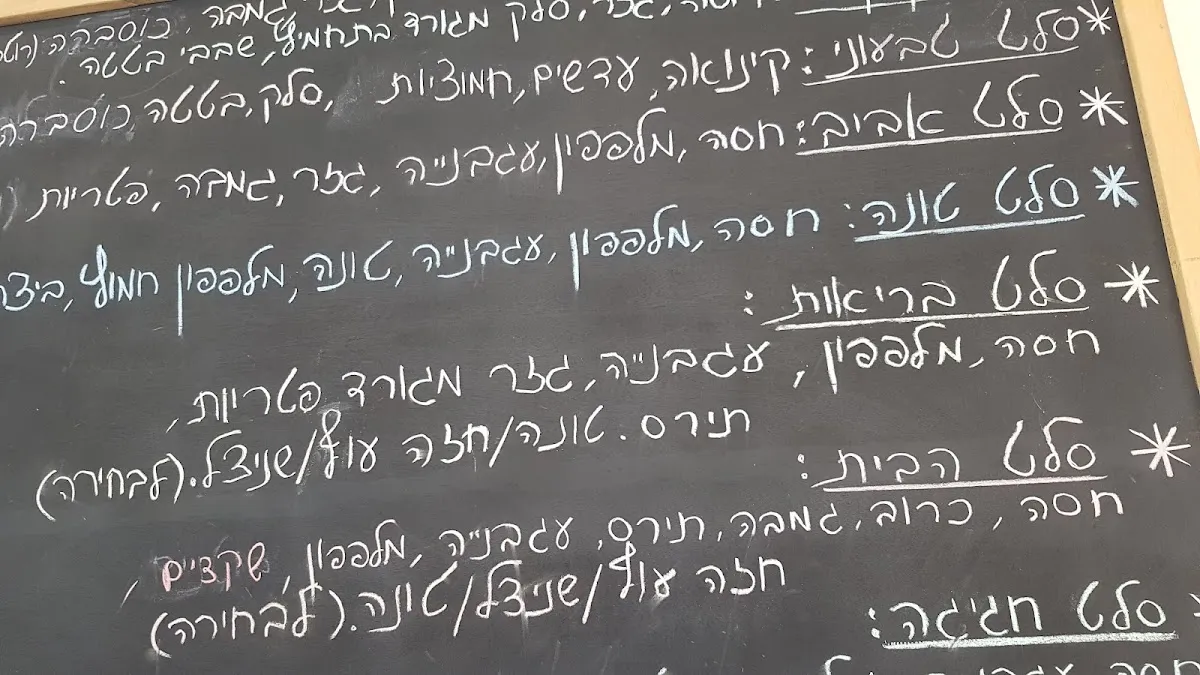 גמבה, כוסברה
גזר, סלק מגורד בתחמיץ, שבבי בטטה.
*סלט טבעוני: קינואה, עדשים, חמוציות, סלק, בטטה כוסברה
* סלט אביב: חסה, מלפפון, עגבנייה, גזר, גמבה, פטריות
* סלט טונה: חסה, מלפפון, עגבנייה, טונה, מלפפון חמוץ, ביצ
* סלט בריאות:
חסה, מלפפון, עגבנייה, גזר מגורד פטריות,
תירס. טונה/חזה עוף/שניצל. (לבחירה)
* סלט הבית:
חסה, כרוב, גמבה, תירס, עגבנייה, מלפפון, שקציים,
חזה עוף/שניצל/טונה. (לבחירה)
סלט חגיגה: